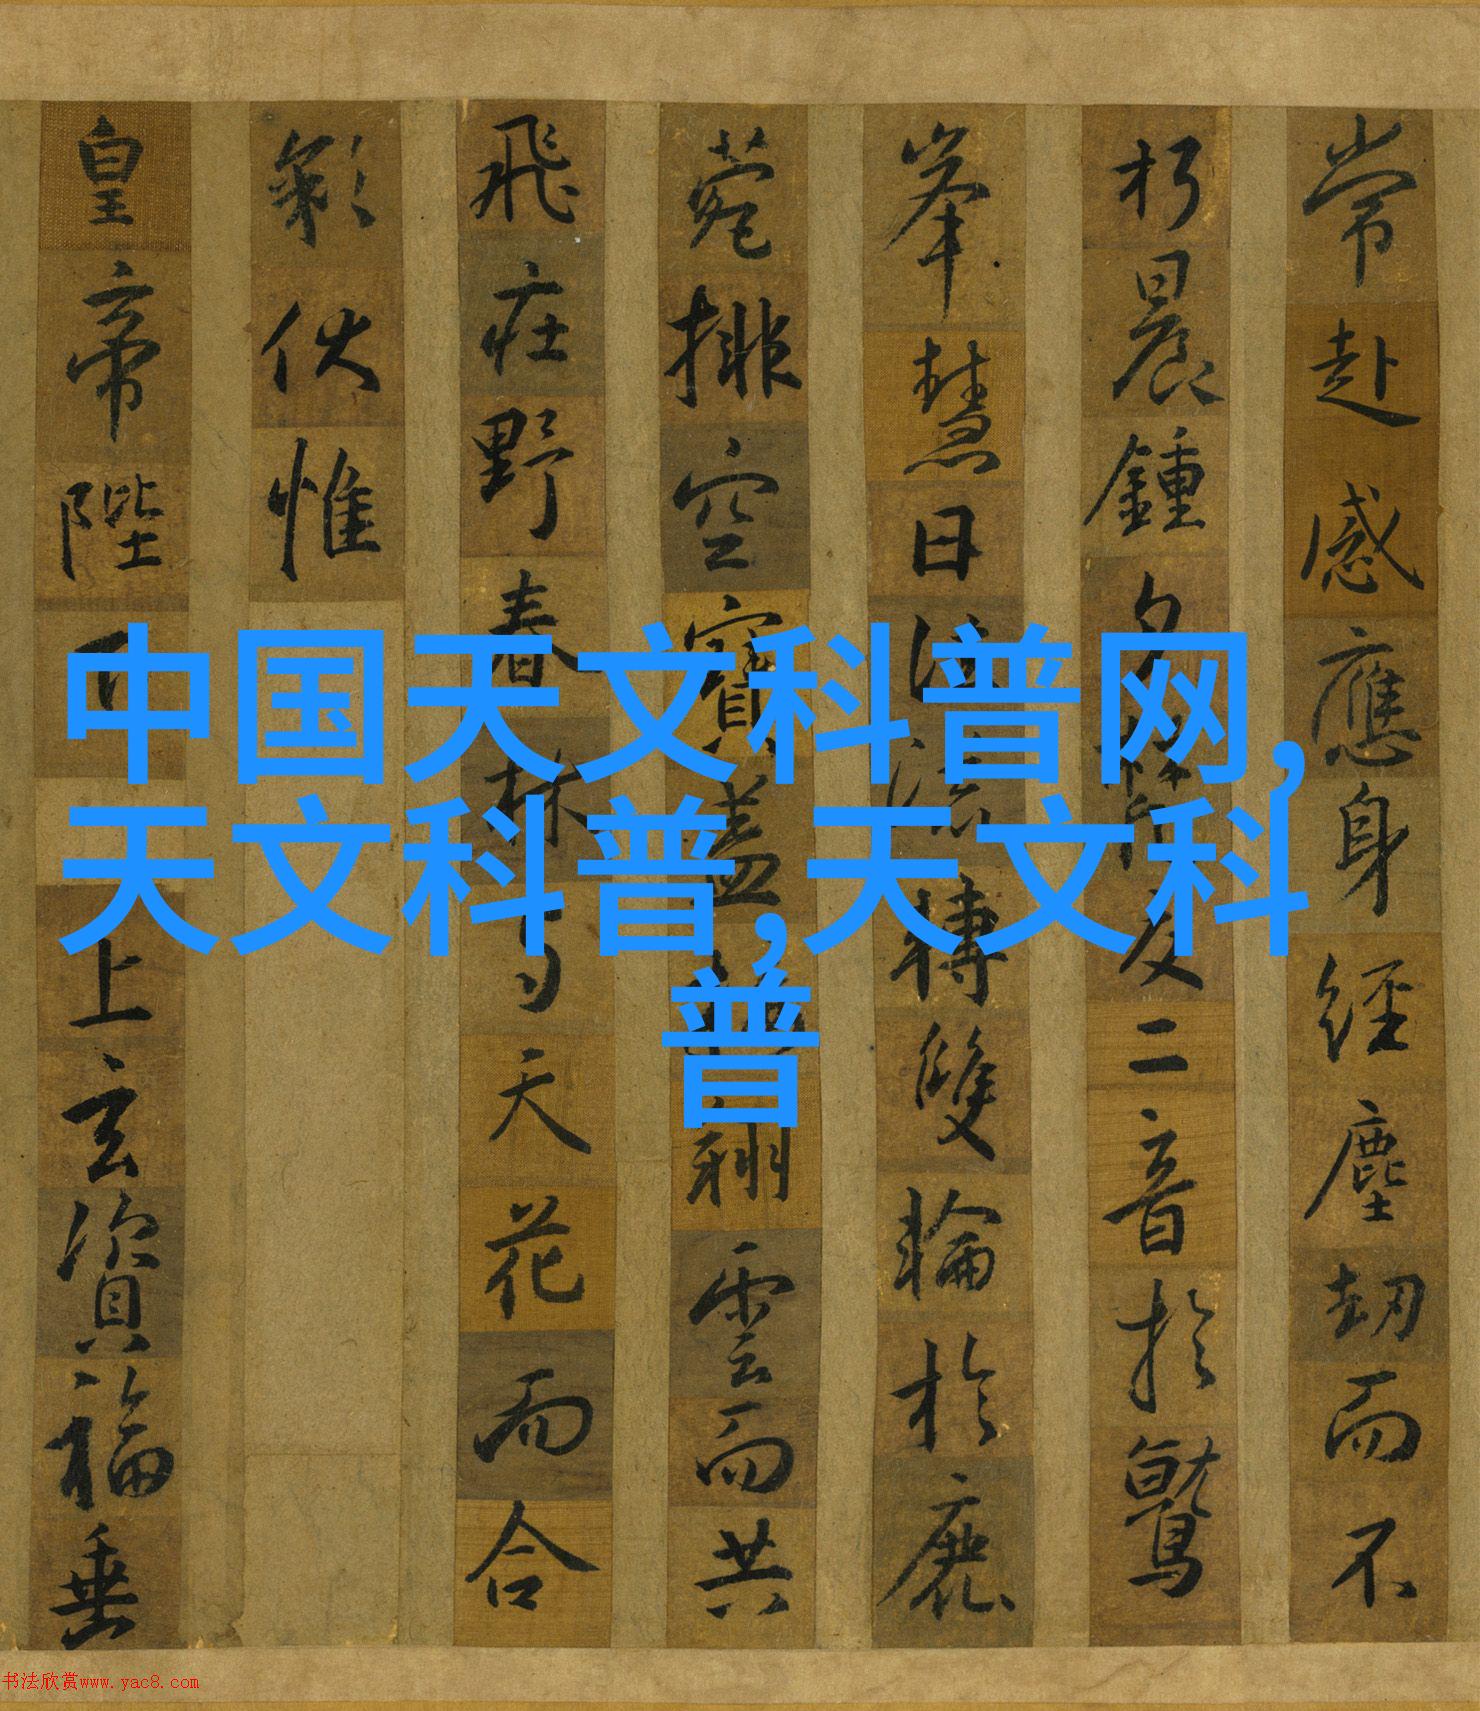 常赴感應身經塵劫而不
朽晨鍾夕梵交二音於鷲
峯慧日法流轉雙輪於鹿
菀排空寶蓋接翔雲而共
飛莊野春林与天花而合
彩伏惟
皇帝陛下上玄資福垂
中国天文科普网,
天文科普,天文科
普
书法欣赏www.yac8.com